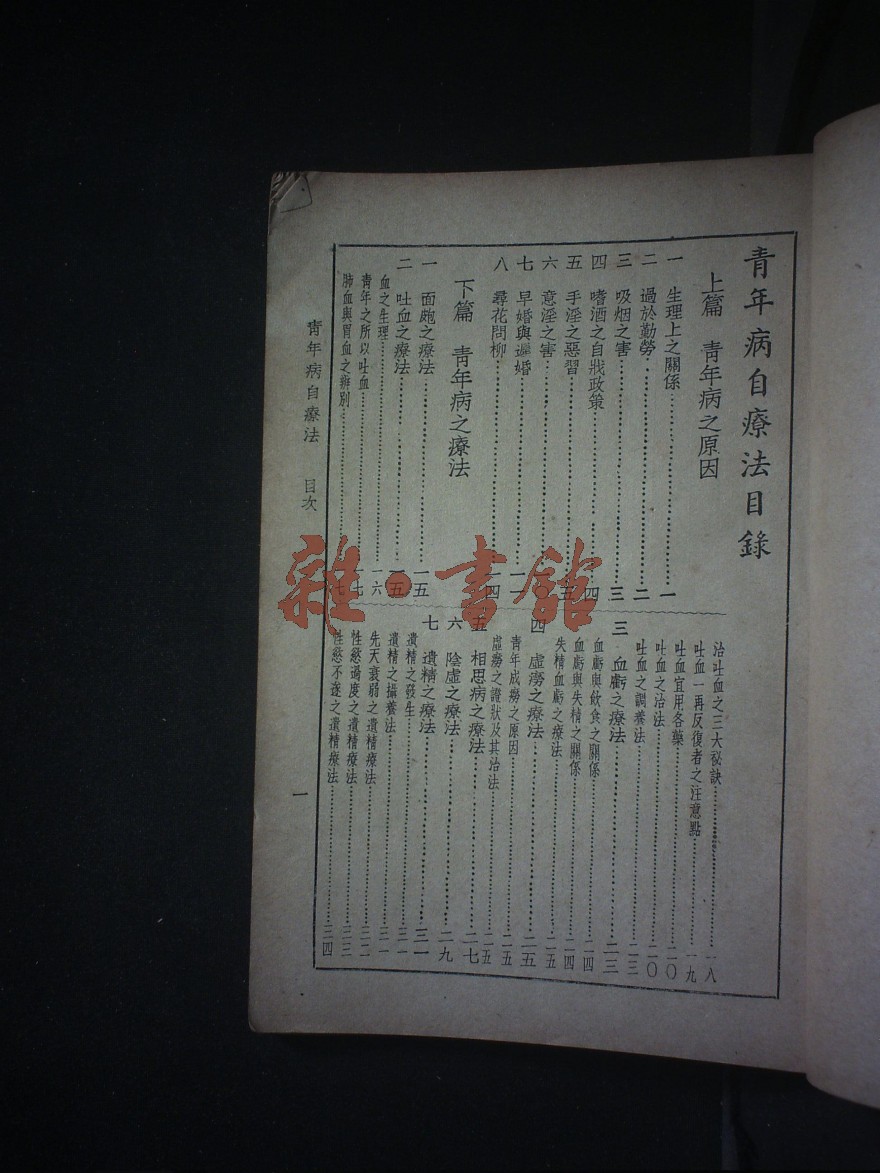 青年病自療法目錄
上篇 青年病之原因
一 生理上之關係 一
二 過於勤勞 二
三 吸烟之害 三
四 嗜酒之自戕政策 四
五 手淫之惡習 五
六 意淫之害
七 早婚與遲婚
八 尋花問柳
下篇 青年病之療法
一 面皰之療法 一五
二 吐血之療法 一五
血之生理 一六
青年之所以吐血 一七
肺血與胃血之辨別 一七
治吐血之三大祕訣 一八
吐血一再反復者之注意點 一九
吐血宜用各藥 二〇
吐血之治法 二〇
吐血之調養法 二三
三 血虧之療法 二三
血虧與飲食之關係 二四
血虧與失精之關係 二四
失精血虧之療法 二五
四 虛癆之療法 二五
青年成癆之原因 二五
虛癆之證狀及其治法 二五
五 相思病之療法 二七
六 陰虛之療法 二九
七 遺精之療法 三一
遺精之發生 三一
遺精之攝養法 三一
先天衰弱之遺精療法 三二
性慾過度之遺精療法 三三
性慾不遂之遺精療法 三四
青年病自療法 目次
一
雜·書館